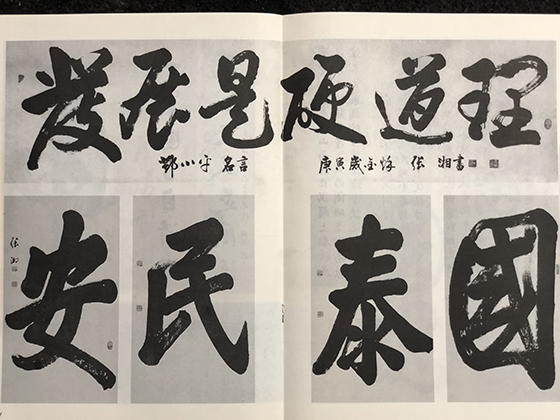 發展是硬道理
鄧小平 名言
庚寅歲金秋 张 湘書
國泰民安
张湘